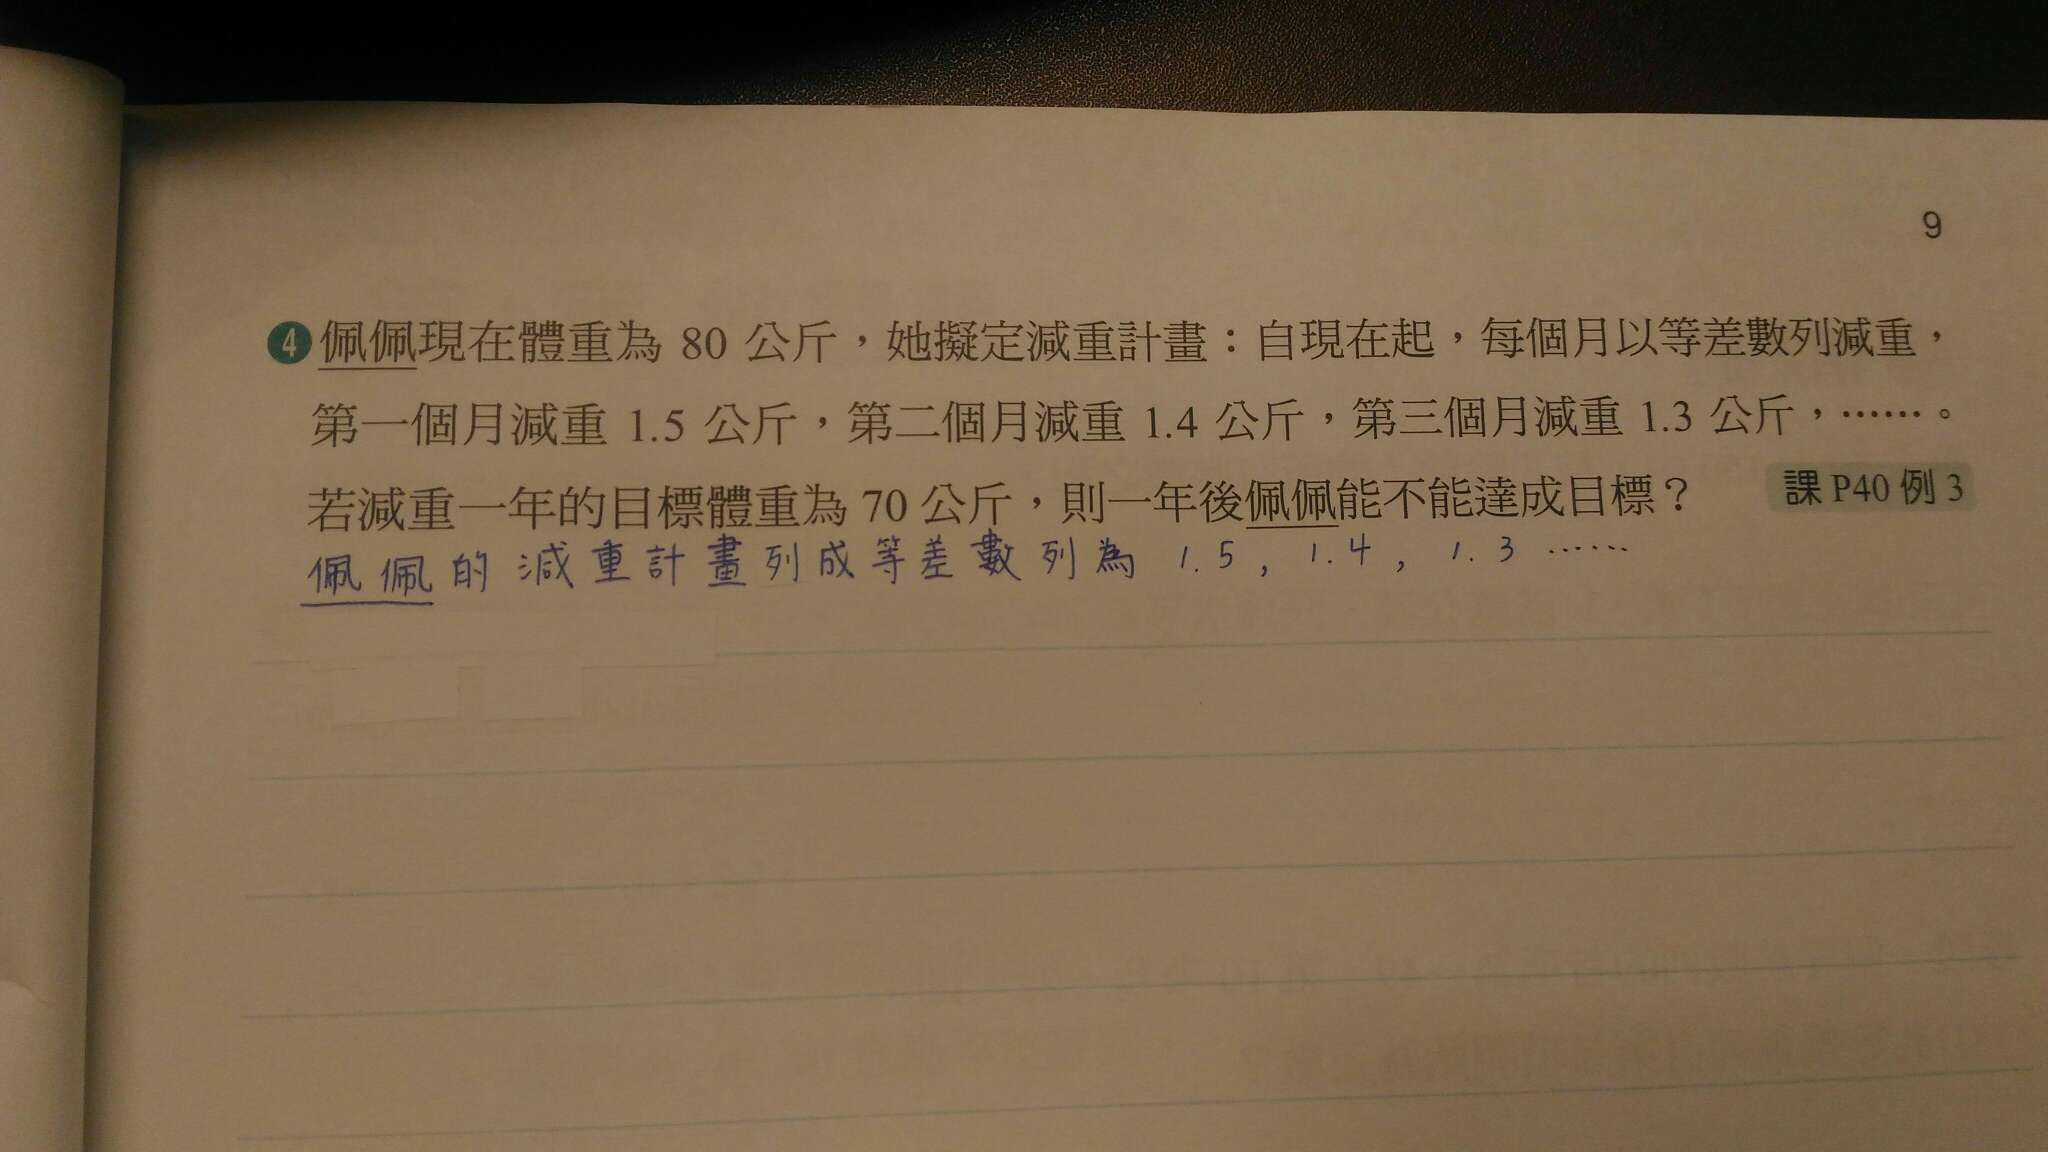 9
4 佩佩現在體重為 80 公斤，她擬定減重計畫：自現在起，每個月以等差數列減重，
第一個月減重 1.5 公斤，第二個月減重 1.4 公斤，第三個月減重 1.3 公斤，⋯⋯。
若減重一年的目標體重為 70 公斤，則一年後佩佩能不能達成目標？ 課 P40 例 3
佩佩的減重計畫列成等差數列為 1.5 , 1.4 , 1.3 ⋯⋯